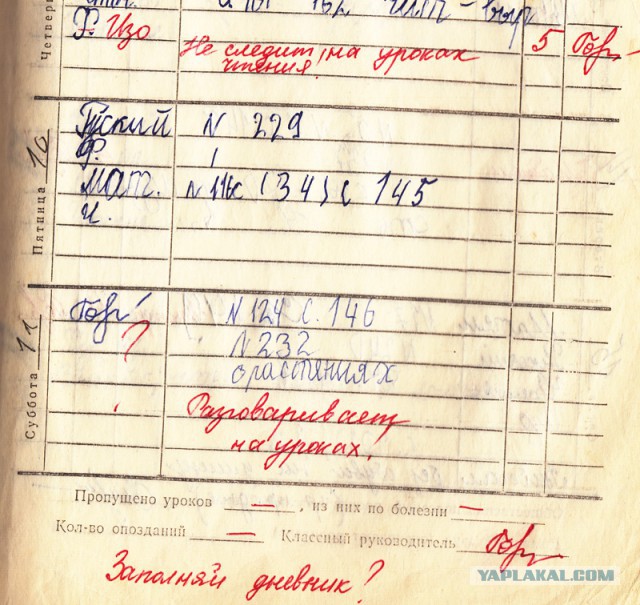 Четверг
Ф. Изо
Не следит на уроках 5
чтения!
Пятница 10
Русский N 229
Ф.
мат. (34) с 145
и.
Суббота 11
N 124 с. 146
? N 232
о растяниях
Разговаривает
на уроках!
Пропущено уроков — , из них по болезни —
Кол-во опозданий — Классный руководитель
Заполняй дневник?
YAPLAKAL.COM